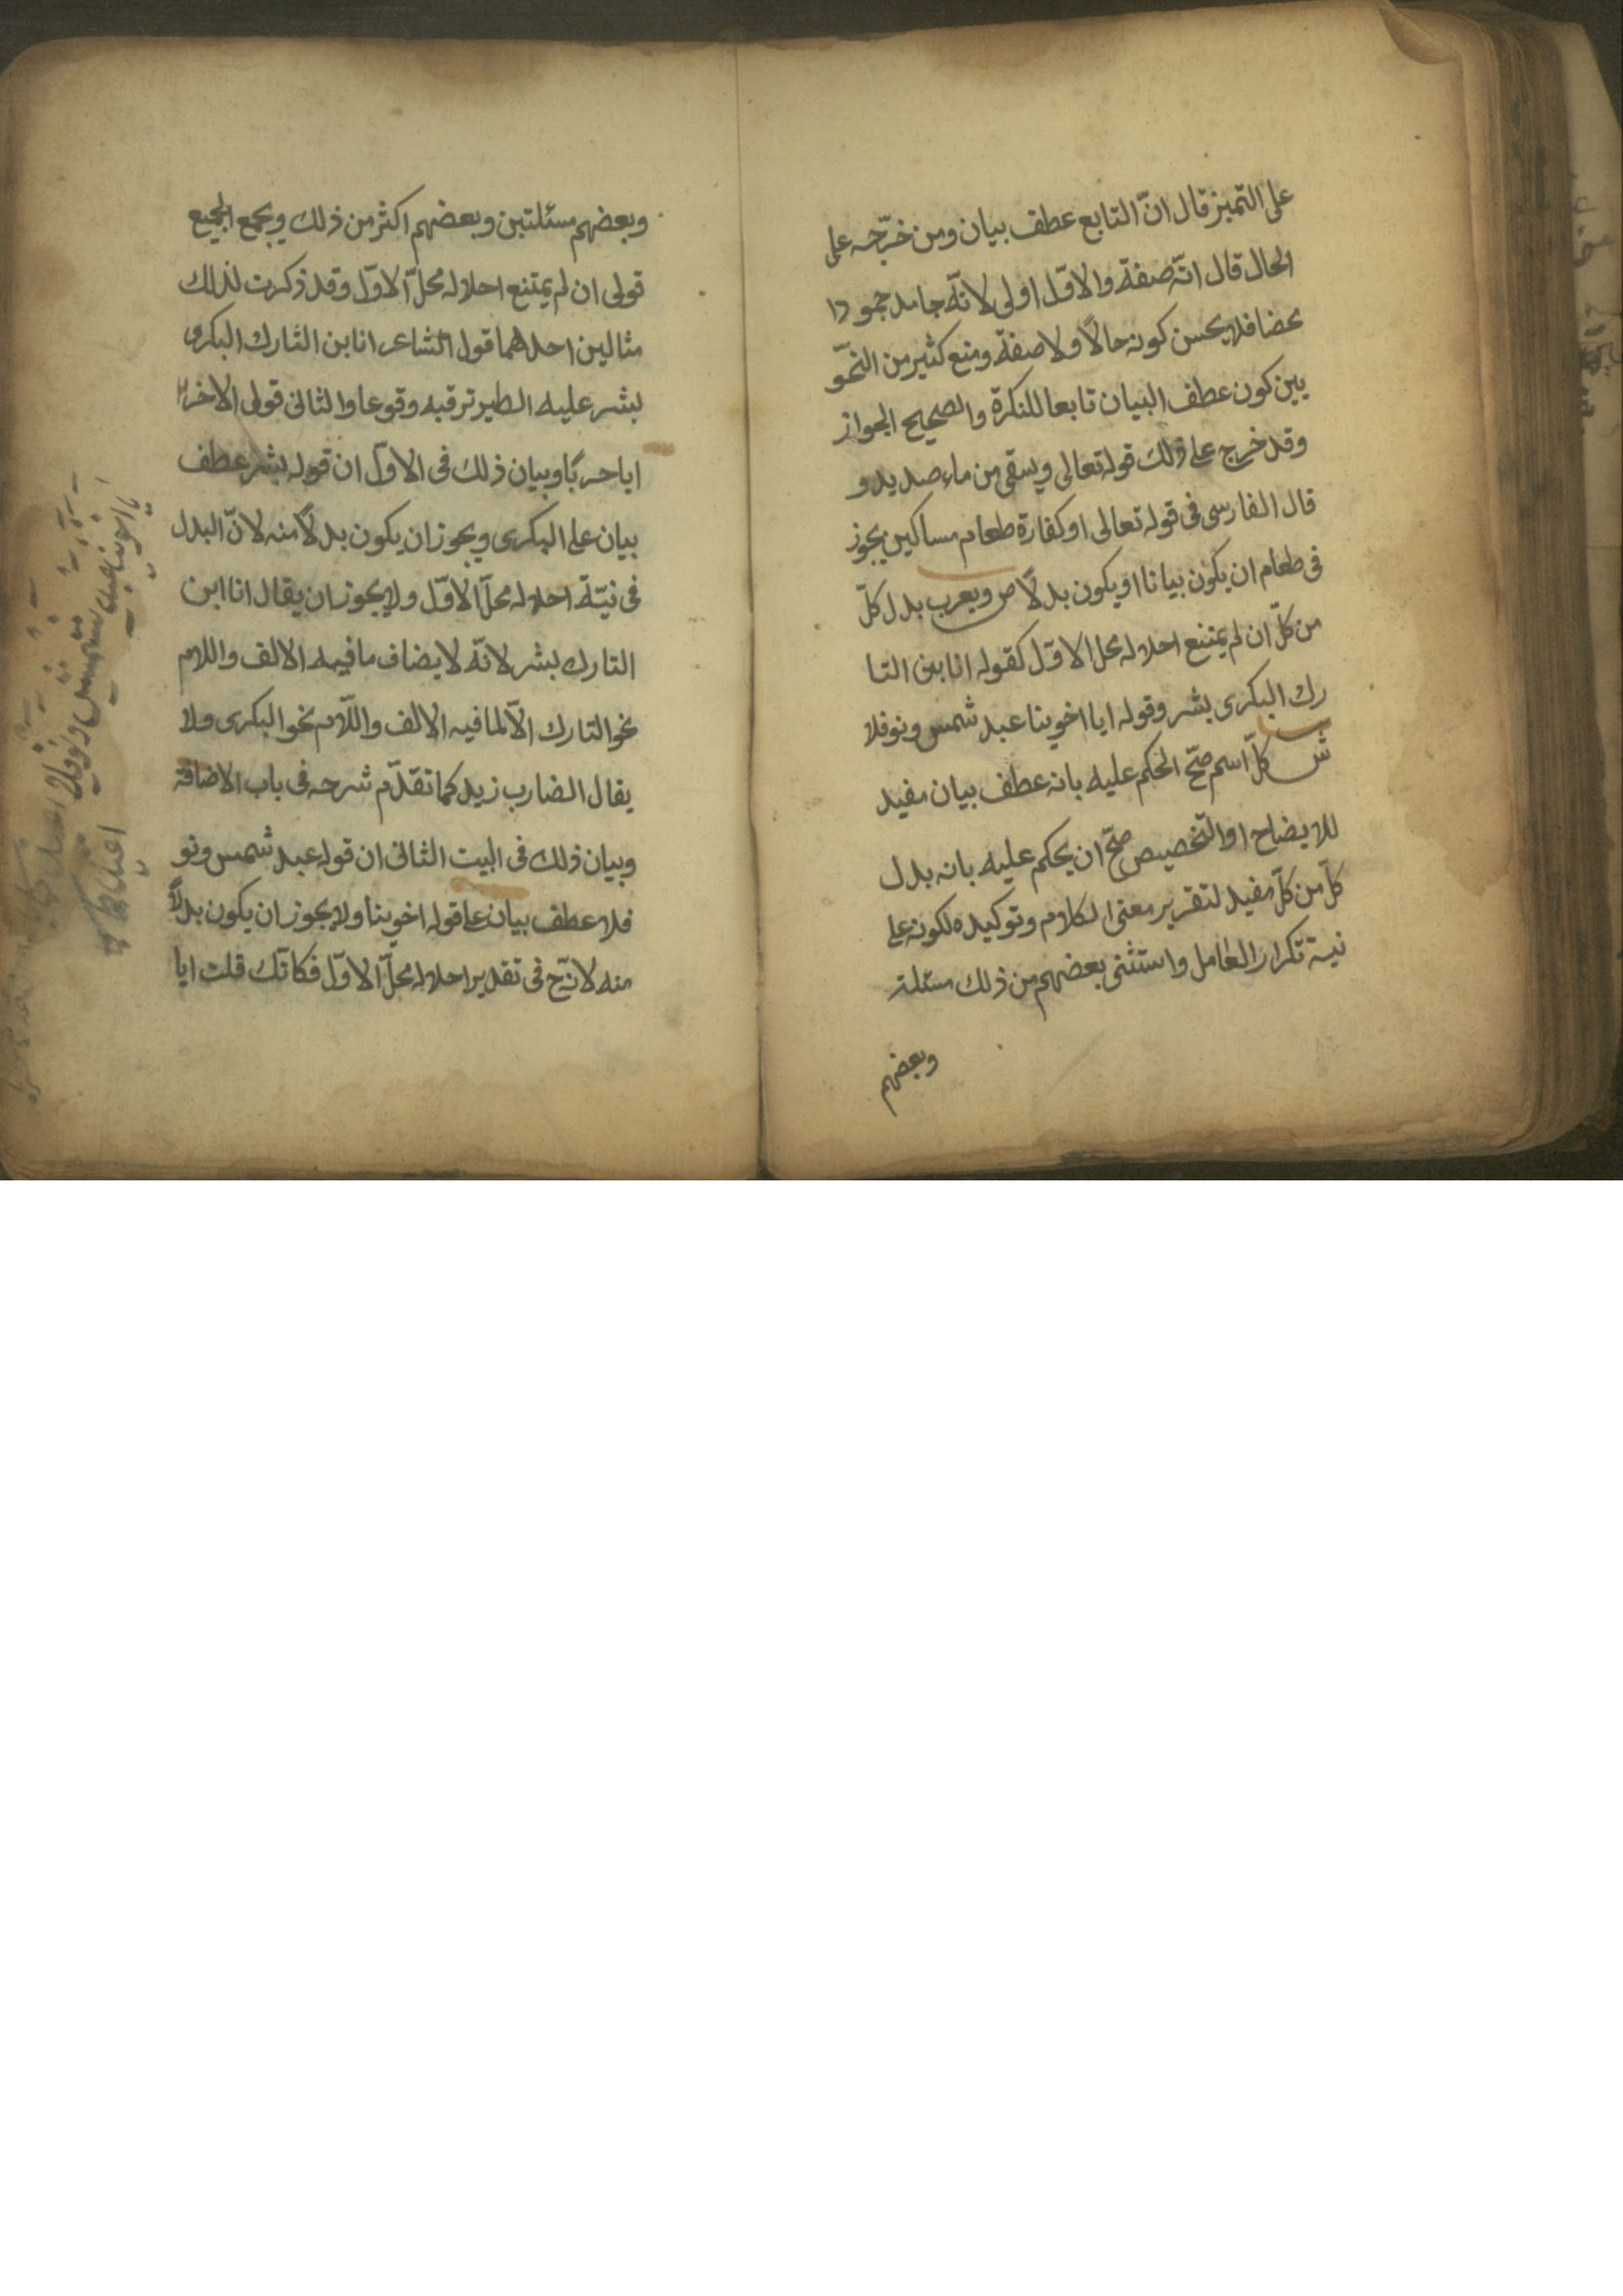 على التميز قال انّ التابع عطف بيان ومن خرّجه على
الحال قال انّه صفة والاوّل اولى لانّه جامد جمودا
محضا فلا يحسن كونه حالاً ولا صفة ومنع كثير من النحوّ
يين كون عطف البيان تابعا للنكرة والصحيح الجواز
وقد خرج على ذلك قوله تعالى ويسقى من ماء صديد و
قال الفارسى فى قوله تعالى او كفارة طعام مساكين يجوز
فى طعام ان يكون بيانا او يكون بدلاً ص ويعرب بدل كلّ
من كلّ ان لم يمتنع احلاله محل الاوّل كقوله انا بن التا
رك البكرى بشر وقوله ايا اخوينا عبد شمس ونوفلا
ش كلّ اسم صحّ الحكم عليه بانه عطف بيان مفيد
للايضاح او التخصيص صحّ ان يحكم عليه بانه بدل
كلّ من كلّ مفيد لتقرير معنى الكلام وتوكيده لكونه على
نية تكرار العامل واستثنى بعضهم من ذلك مسئلة
وبعضهم
وبعضهم مسئلتين وبعضهم اكثر من ذلك ويجمع الجميع
قولى ان لم يمتنع احلاله محلّ الاوّل وقد ذكرت لذلك
مثالين احدهما قول الشاعر انا بن التارك البكرى
بشر عليه الطير ترقبه وقوعا والثانى قولى الاخر
ايا حربًا وبيان ذلك فى الاوّل ان قوله بشر عطف
بيان على البكرى ويجوز ان يكون بدلاً منه لانّ البدل
فى نيّة احلاله محلّ الاوّل ولا يجوز ان يقال انا ابن
التارك بشر لانّه لا يضاف ما فيه الالف واللام
نحو التارك الّا لما فيه الالف واللّام نحو البكرى ولا
يقال الضارب زيد كما تقدّم شرحه فى باب الاضافة
وبيان ذلك فى البيت الثانى ان قوله عبد شمس ونو
فلا عطف بيان على قوله اخوينا ولا يجوز ان يكون بدلاً
منه لانّه ح فى تقدير احلاله محلّ الاوّل فكانّك قلت ايا
ايا اخوينا عبد شمس ونوفلا